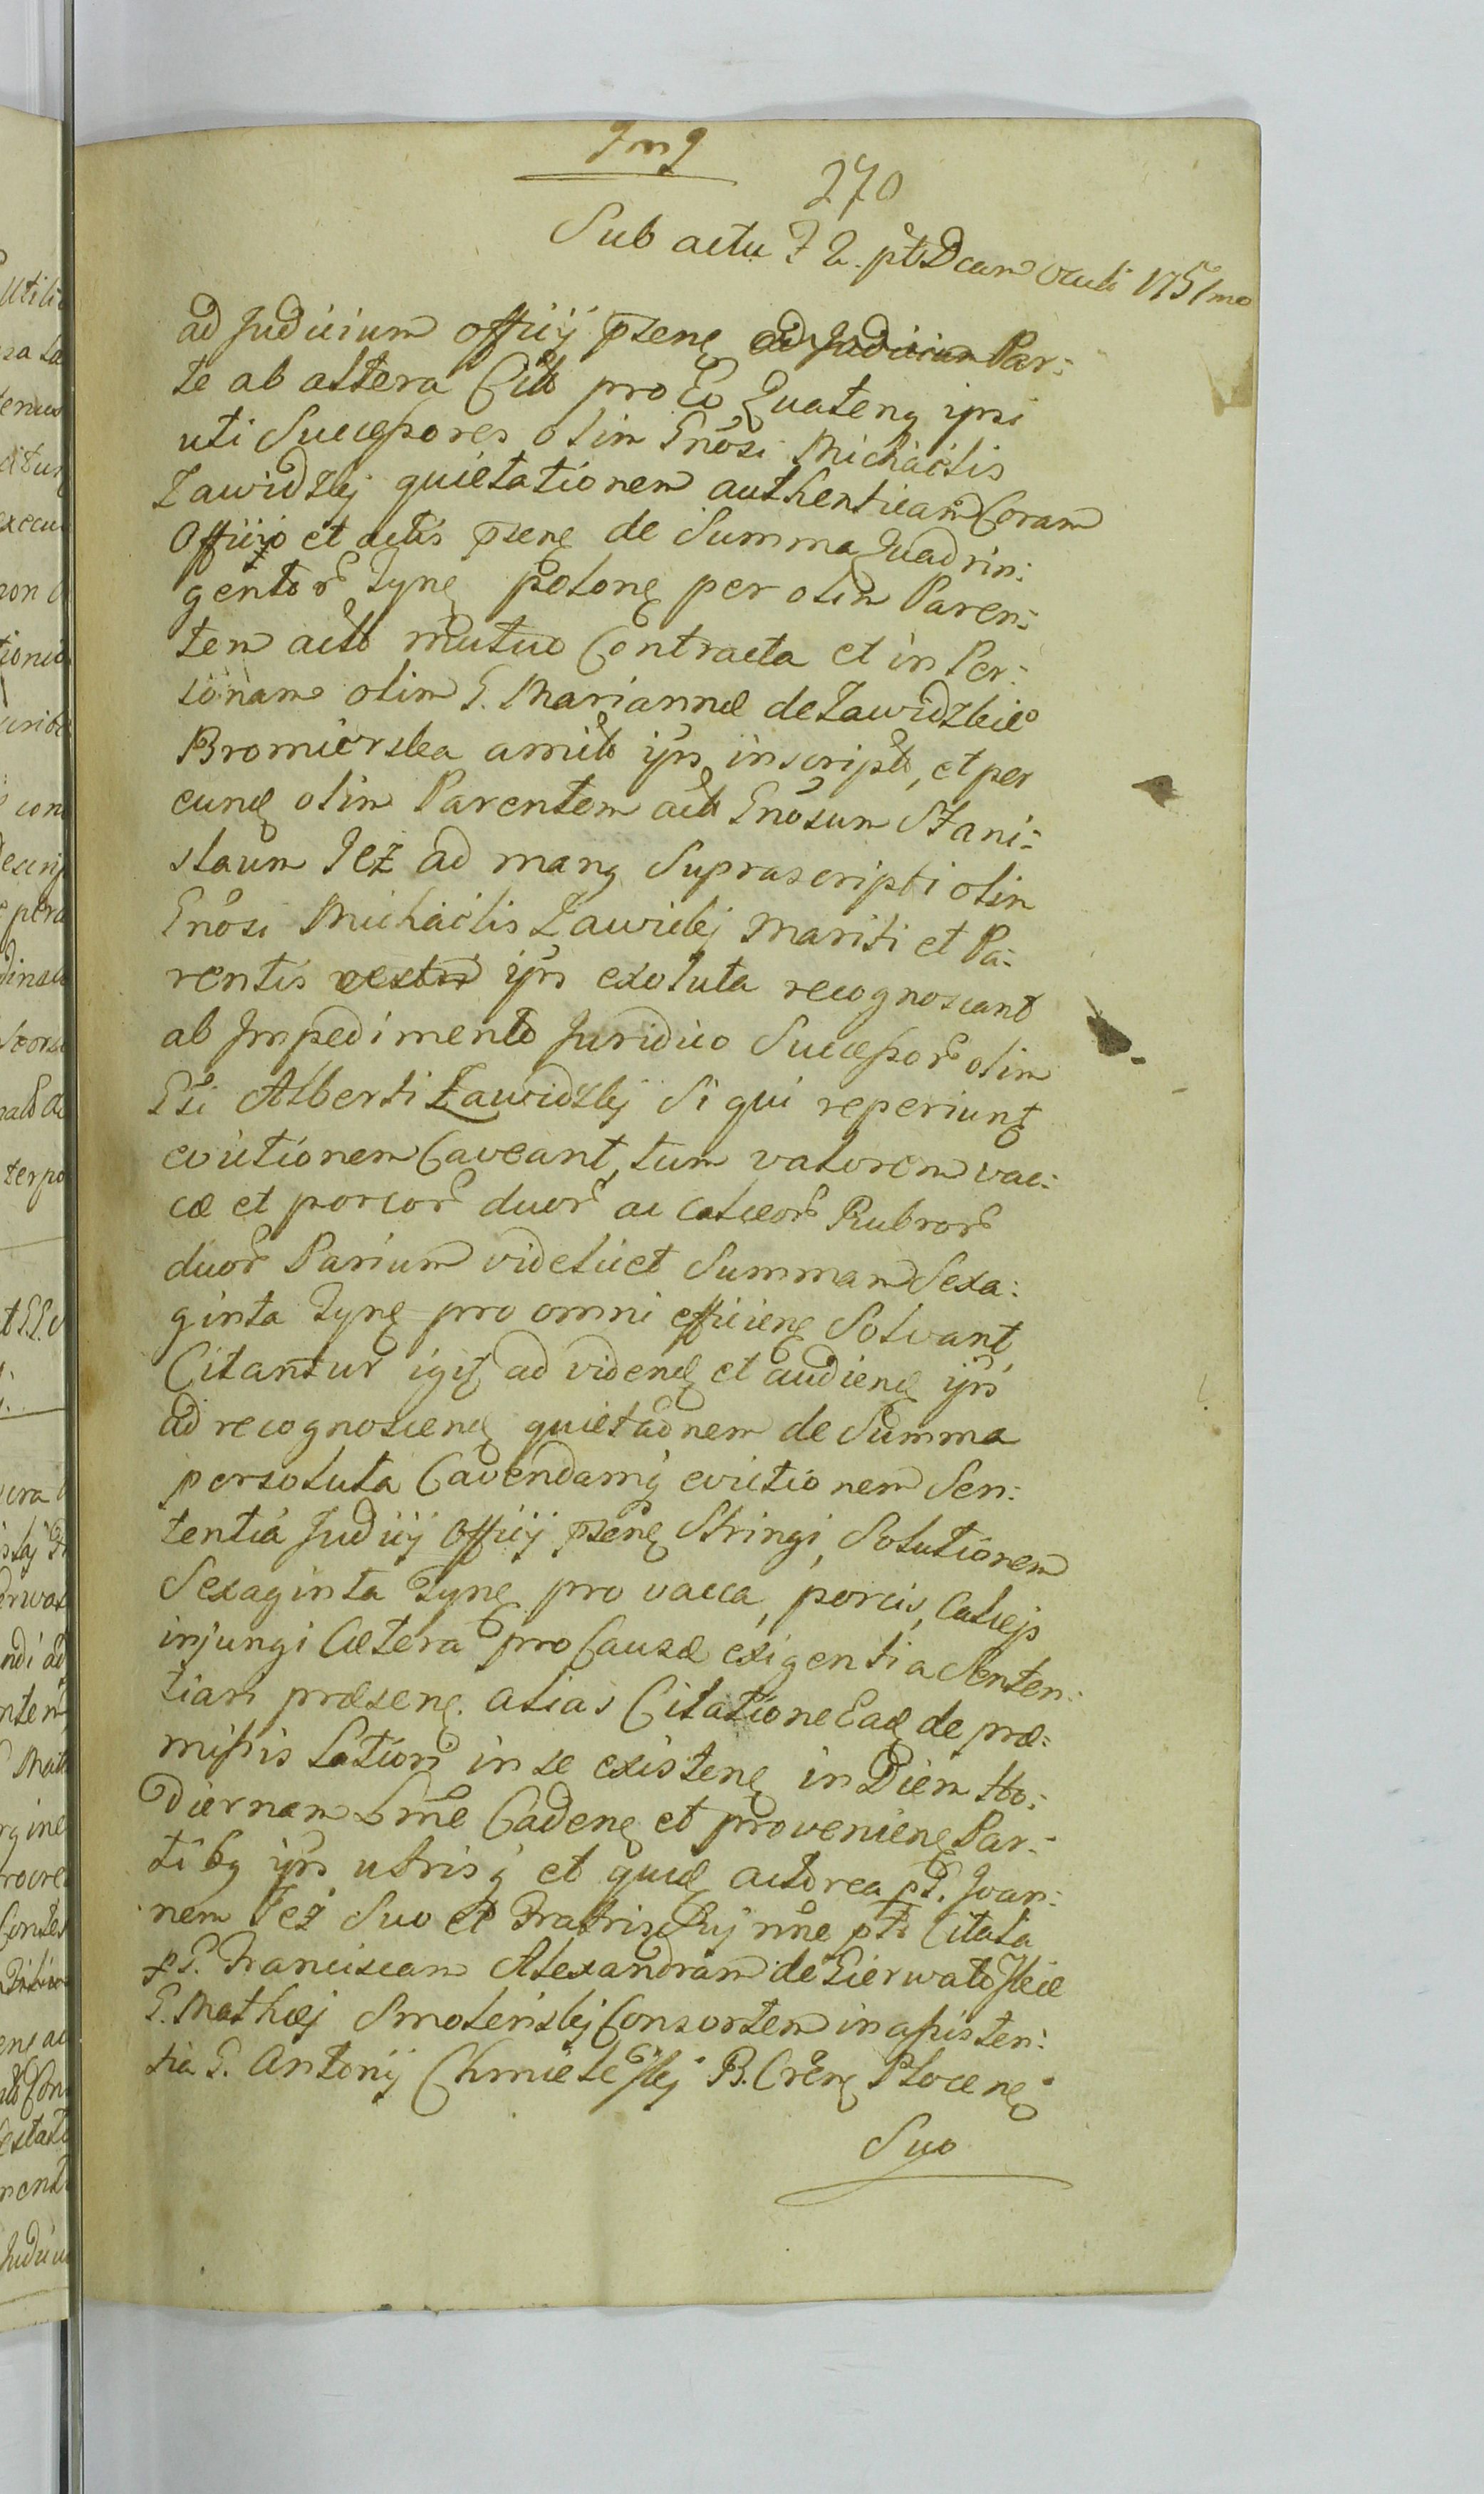 270
Sub actu F 2. ptDcam oculi 1751mo
ad Judicium officij psenę ad Judicium Par:
te ab altera Citt pro Eo Quateng ipsi
uti Successores olim Gnosi Michaelis
Zawidzkij quietationem authenticam Coram
Officio et actis psenę de Summa Quadrin:
gentor Tynę polonę per olim Paren:
tem actt mutuo Contracta et in Per:
sonam olim G. Mariannæ de Zawidzkie
Bromierska amitt ips inscript, et per
eunę olim Parentem actt Gnosum Stani:
slaum Jeż ad mang Suprascripti olim
Gnosi Michaelis Zawidzkij Mariti et Pa:
rentis vestri ips exoluta recognoscant
ab Impedimento Juridico Successor olim
Gsi Alberti Zawidzkij Si qui reperiunt
evictionem Caveant, tum valorem vac:
cæ et porcor duor ac calceor Rubror
duor Parium videlicet Summam Sexa:
ginta Tynę pro omni efficienę Solvant,
Citantur igit ad videnę et audienę ips
ad recognoscenę quietaonem de Summa
persoluta Cavendamq evictionem Sen:
tentia Judicij Officij psenę Stringi, Solutionem
Sexaginta Tynę pro vacca, porcis, Calceis
injungi Cætera pro Causæ exigentia Senten:
tiari præsenę. alias Citatione Eadę de præ:
missis Latiori in se existenę in Diem Ho:
diernam Lrme Cadenę et provenienę Par:
tibg ips utrisq et quidę actorea pt. Joan:
nem Jeż Suo et Fratris Sui nne pts Citata
p G. Franciscam Alexandram de Gierwatowskie
G. Mathæj Smolenskij Consortem in assisten:
tia G. Antonij Chmielewskij B. Crenę Plocenę
Suo